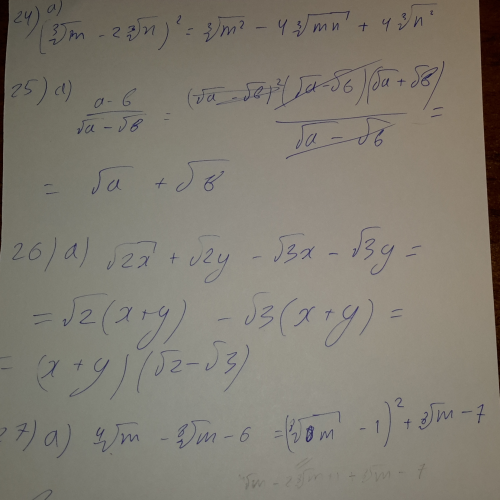 24) a)
(∛m - 2∛n)² = ∛m² - 4∛mn + 4∛n²
25) a)
(a - b)/(√a - √b) = (√a - √b)(√a + √b)/(√a - √b) =
= √a + √b
26) a) √2x + √2y - √3x - √3y =
= √2(x+y) - √3(x+y) =
= (x+y)(√2-√3)
27) a) ∜m - ∛m - 6 = (∛m - 1)² + ∛m - 7